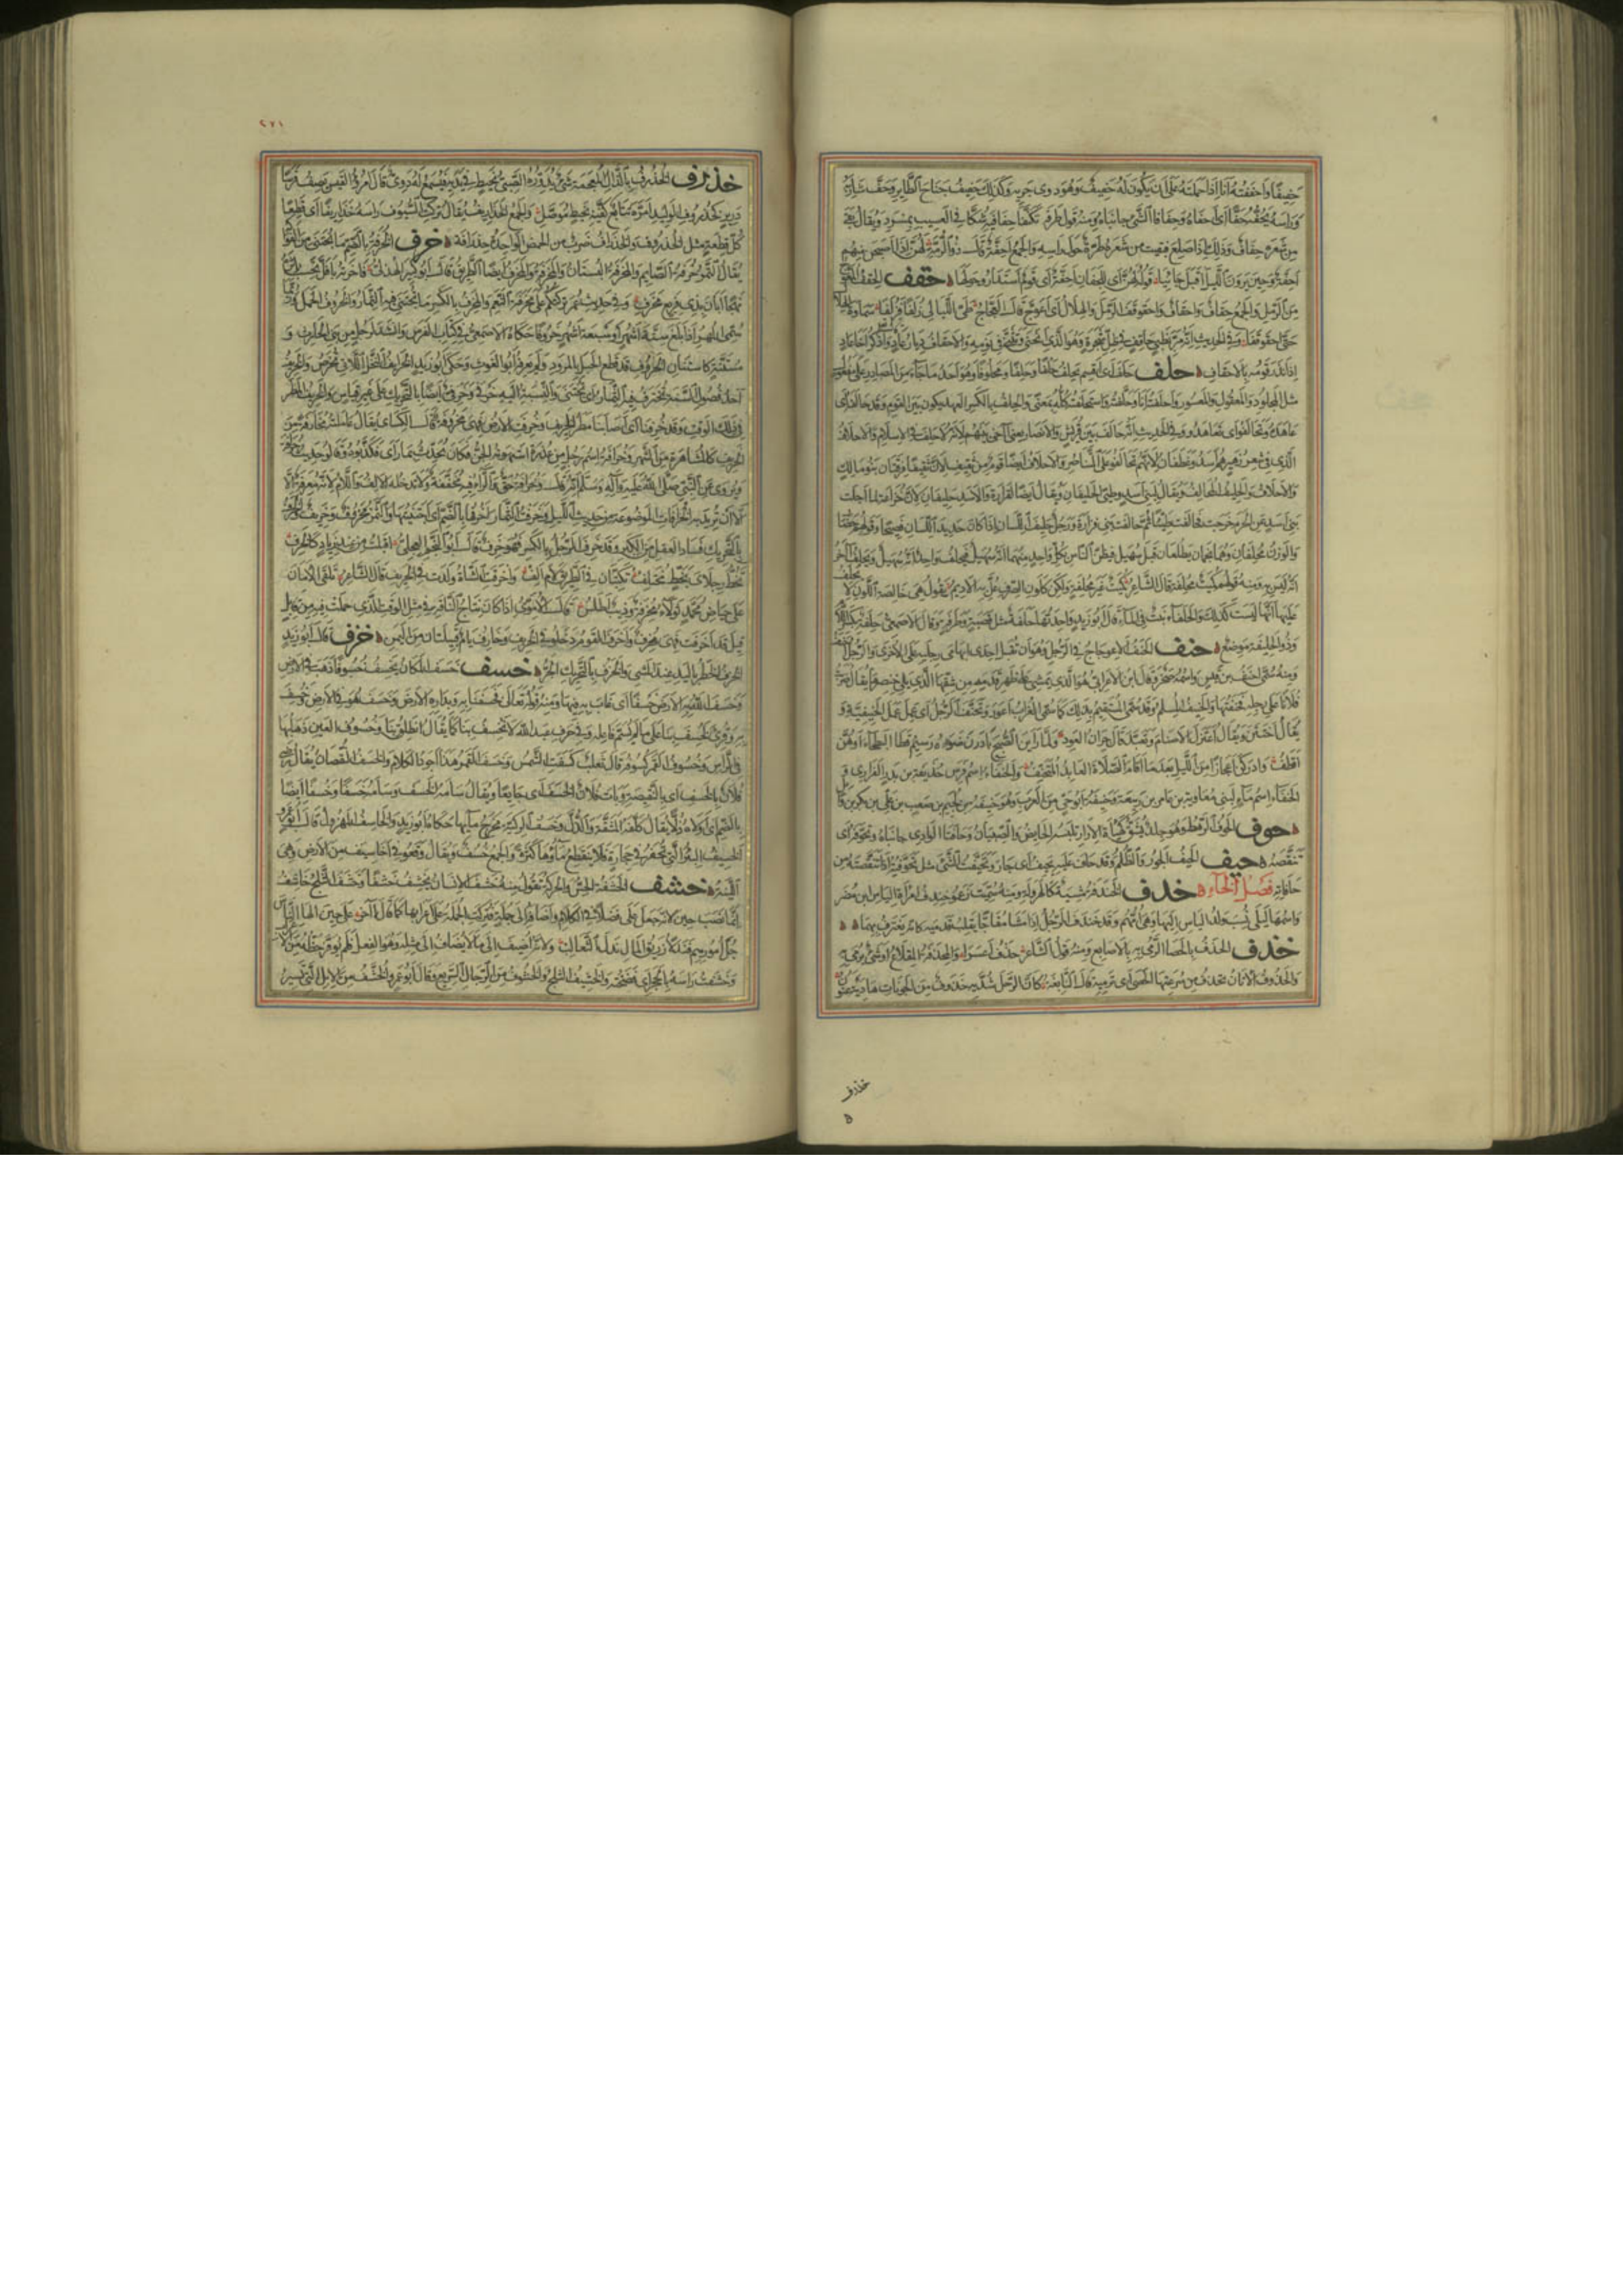 حفيفا واحففته انا اذا حملته على ان يكون له حفيف وهو دوى جريه وكذلك حفيف جناح الطائر وحف شاربه
وراسه يحفه حفا اى احفاه وحفافا الشئ جانباه ومنه قول طرفة تكنفا حفافيه شكا فى العسيب بمسرد ويقال بقى
من شعره حفاف وذلك اذا صلع فبقيت من شعره طرة حول راسه والجمع احفة قال ذو الرمة لهن اذا اصبحن منهم
احفة وحين يرون الليل اقبل جائيا قوله لهن اى للجفان احفة اى قوم استداروا حولها حقف الحقف المعوج
من الرمل والجمع حقاف واحقاف واحقوقف الرمل والهلال اى اعوج قال العجاج طى الليالى زلفا فزلفا سماوة الهلال
حتى احقوقفا وفى الحديث انه مر بظبى حاقف فى ظل شجرة وهو الذى انحنى وتثنى فى نومه والاحقاف ديار عاد واذكر اخا عاد
اذ انذر قومه بالاحقاف حلف حلف اى اقسم يحلف حلفا وحلفا ومحلوفا وهو احد ما جاء من المصادر على مفعول
مثل المجلود والمعقول والمعسور واحلفته انا وحلفته واستحلفته كله بمعنى والحلف بالكسر العهد يكون بين القوم وقد حالفه اى
عاهده وتحالفوا اى تعاهدوا وفى الحديث انه حالف بين قريش والانصار يعنى آخى بينهم لانه لا حلف فى الاسلام والاحلاف
الذى فى شعر زهير هم اسد وغطفان لانهم تحالفوا على التناصر والاحلاف ايضا قوم من ثقيف لان ثقيفا فرقتان بنو مالك
والاحلاف والحليف المحالف ويقال لبنى اسد وطيئ الحليفان ويقال ايضا لفزارة ولاسد حليفان لان خزاعة لما اجلت
بنى اسد عن الحرم خرجت فحالفت طيئا ثم حالفت بنى فزارة ورجل حليف اللسان اذا كان حديد اللسان فصيحا وقولهم حضار
والوزن محلفان وهما نجمان يطلعان قبل سهيل فيظن الناس بكل واحد منهما انه سهيل فيحلف واحد انه سهيل ويحلف آخر
انه ليس به ومنه قولهم كميت محلفة قال الشاعر كميت غير محلفة ولكن كلون الصرف عل به الاديم يقول هى خالصة اللون لا يحلف
عليها انها ليست كذلك والحلفاء نبت فى الماء قال ابو زيد واحدتها حلفة مثل قصبة وطرفة وقال الاصمعى حلفة بكسر اللام
وذو الحليفة موضع حنف الحنف الاعوجاج فى الرجل وهو ان تقبل احدى ابهامى رجليه على الاخرى والرجل احنف
ومنه سمى احنف بن قيس واسمه صخر وقال ابن الاعرابى هو الذى يمشى على ظهر قدمه من شقها الذى يلى خنصرها يقال ضربت
فلانا على رجله فحنفتها والحنيف المسلم وقد سمى المستقيم بذلك كما سمى الغراب اعور وتحنف الرجل اى عمل عمل الحنيفية و
يقال اختتن ويقال اعتزل الاصنام وتعبد قال جران العود ولما راين الصبح بادرن ضوءه رسيم قطا البطحاء او هن
اقطف وادركن اعجازا من الليل بعد ما اقام الصلاة العابد المتحنف والحنفاء اسم فرس حذيفة بن بدر الفزارى و
الحنفاء اسم ماء لبنى معاوية بن عامر بن ربيعة وحنيفة ابو حى من العرب وهو حنيفة بن لجيم بن صعب بن على بن بكر بن وائل
حوف الحوف الرهط وهو جلد يشق كهيئة الازار تلبسه الحائض والصبيان وحافتا الوادى جانباه وتحوفه اى
تنقصه حيف الحيف الجور والظلم وقد حاف عليه يحيف اى جار وتحيفت الشئ مثل تحوفته اذا تنقصته من
حافاته فصل الخاء خدف الخندفة مشية كالهرولة ومنه سميت زعموا خندف امراة الياس بن مضر
واسمها ليلى نسب ولد الياس اليها وهى امهم وقد خندف الرجل اذا مشى مفاجا يقلب قدميه كانه يغترف بهما
خذف الخذف بالحصا الرمى به بالاصابع ومنه قول الشاعر خذف اعسرا والمخذفة المقلاع وشئ يرمى به
والخذوف الاتان تخذف من سرعتها الحصى اى ترميه قال النابغة كان الرحل شد به خذوف من الجونات هادية عنون
خذرف
٢٧١
خذرف الخذروف بالذال المعجمة شئ يدوره الصبى بخيط فى يديه فيسمع له دوى قال امرؤ القيس يصف فرسا
درير كخذروف الوليد امره تتابع كفيه بخيط موصل والجمع الخذاريف يقال تركت السيوف راسه خذاريف اى قطعا
كل قطعة مثل الخذروف والخذراف ضرب من الحمض الواحدة خذرافة خرف الخرفة بالضم ما يجتنى من الفواكه
يقال التمر خرفة الصائم والمخرفة البستان والمخرفة والمخرف ايضا الطريق قال ابو كبير الهذلى فاجزته بافل تحسب اثره
نهجا ابان بذى فريغ مخرف وفى حديث عمر تركتكم على مخرفة النعم والمخرف بالكسر ما تجتنى فيه الثمار والخروف الحمل وربما
سمى المهر اذا بلغ ستة اشهر او سبعة اشهر خروفا حكاه الاصمعى فى كتاب الفرس وانشد لرجل من بنى الحارث و
مستنة كاستنان الخروف قد قطع الحبل بالمرود ولم يعرفه ابو الغوث وحكى ابو زيد الخرائف النخل اللاتى تخرص والخريف
احد فصول السنة تخترف فيه الثمار اى تجتنى والنسبة اليه خرفى وخرفى ايضا بالتحريك على غير قياس والخريف المطر
فى ذلك الوقت وقد خرفنا اى اصابنا مطر الخريف وخرفت الارض فهى مخروفة قال الكسائى يقال عاملته مخارفة من
الخريف كالمشاهرة من الشهر وخرافة اسم رجل من عذرة استهوته الجن فكان يحدث بما راى فكذبوه وقالوا حديث خرافة
ويروى عن النبى صلى الله عليه وآله وسلم انه قال وخرافة حق والراء فيه مخففة ولا تدخله الالف واللام لانه معرفة الا
ان تريد به الخرافات الموضوعة من حديث الليل وخرفت الثمار اخرفها بالضم اى اجتنيتها والثمر مخروف وخريف والخرف
بالتحريك فساد العقل من الكبر وقد خرف الرجل بالكسر فهو خرف قال ابو النجم العجلى اقبلت من عند زياد كالخرف
تخط رجلاى بخط مختلف تكتبان فى الطريق لام الف واخرفت الشاة ولدت فى الخريف قال الشاعر تلقى الامان
على حياض محمد ثولاء مخرفة وذيب اطلس قال الاموى اذا كان نتاج الناقة فى مثل الوقت الذى حملت فيه من قابل
قيل قد اخرفت فهى مخرف واخرف القوم دخلوا فى الخريف وخارف ويام قبيلتان من اليمن خزف قال ابو زيد
الخزف الخطر باليد عند المشى والخزف بالتحريك الجر خسف خسف المكان يخسف خسوفا ذهب فى الارض
وخسف الله به الارض خسفا اى غاب به فيها ومنه قوله تعالى فخسفنا به وبداره الارض وخسف هو فى الارض وخسف
به وقرئ لخسف بنا على ما لم يسم فاعله وفى حرف عبد الله لانخسف بنا كما يقال انطلق بنا وخسوف العين ذهابها
فى الراس وخسوف القمر كسوفه قال ثعلب كسفت الشمس وخسف القمر هذا اجود الكلام والخسف النقصان يقال رضى
فلان بالخسف اى بالنقيصة وبات فلان الخسف اى جائعا ويقال سامه الخسف وسامه خسفا وخسفا ايضا
بالضم اى اولاه ذلا يقال كلفه المشقة والذل وخسف الركية مخرج مائها حكاه ابو زيد والخاسف المهزول قال ابو عمرو
الخسيف البئر التى تحفر فى حجارة فلا ينقطع ماؤها كثرة والجمع خسف ويقال وقعوا فى اخاسيف من الارض وهى
اللينة خشف الخشفة الحس والحركة تقول منه خشف الانسان يخشف خشفا وخشف الثلج
وخشفت راسه بالحجر اى فضخته والخشيف الثلج والخشوف من الرجال السريع وقال ابو عمرو الخشف من الابل التى تسير